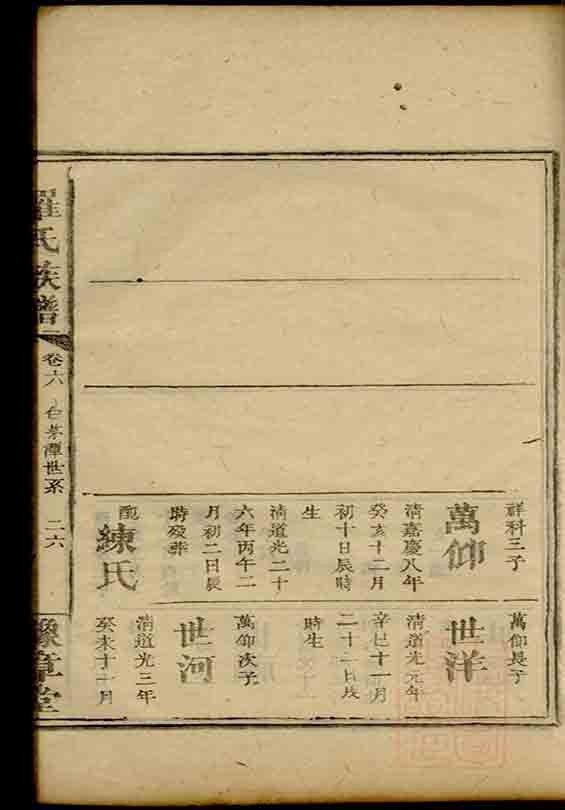 祥科三子
萬仰
清嘉慶八年
癸亥十二月
初十日辰時
生
清道光二十
六年丙午二
月初二日辰
時歿葬
配
練氏
萬仰長子
世洋
清道光元年
辛巳十一月
二十二日戌
時生
萬仰次子
世河
清道光三年
癸未十一月
羅氏族譜
卷六
白茅潭世系
二六
豫章堂